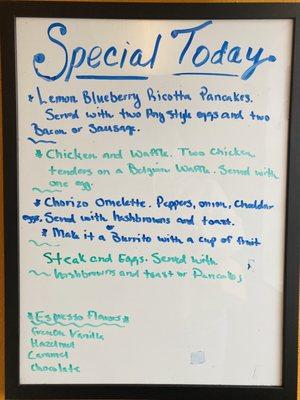 Special Today
* Lemon Blueberry Ricotta Pancakes.
Served with two Any Style eggs and two
Bacon or Sausage.
* Chicken and Waffle. Two Chicken
tenders on a Belgium Waffle. Served with
one egg.
* Chorizo Omelette. Peppers, onion, Cheddar
egg. Served with hashbrowns and toast.
or
* Make it a Burrito with a cup of fruit
Steak and Eggs. Served with
hashbrowns and toast or Pancakes
*Espresso Flavors*
French Vanilla
Hazelnut
Caramel
Chocolate